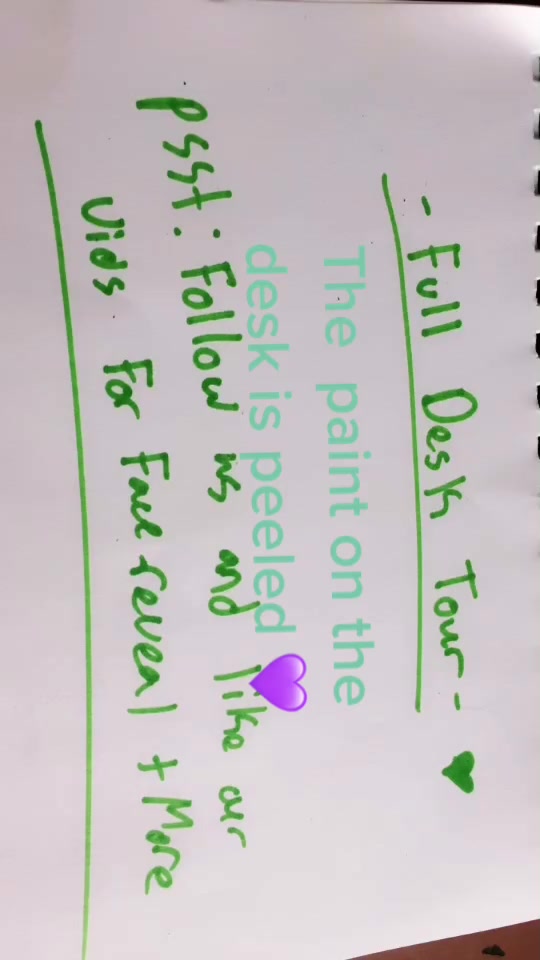 - Full Desk Tour - ♥
The paint on the
desk is peeled 💜
Psst: Follow us and like our
vids for Face reveal + More